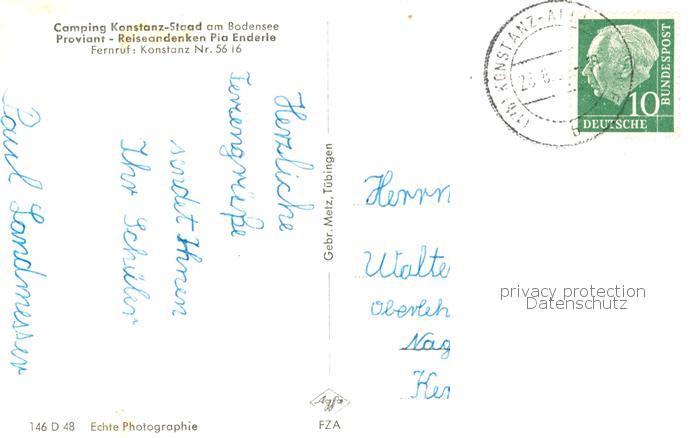 Camping Konstanz-Staad am Bodensee
Proviant - Reiseandenken Pia Enderle
Fernruf: Konstanz Nr. 56 16
Herzliche
Feriengrüße
sendet Ihnen
Ihr Schüler
Paul Landmesser
Gebr. Metz, Tübingen
KONSTANZ
10
BUNDESPOST
DEUTSCHE
Herrn
Walte
Oberleh
Nag
privacy protection
Datenschutz
Agfa
FZA
146 D 48 Echte Photographie